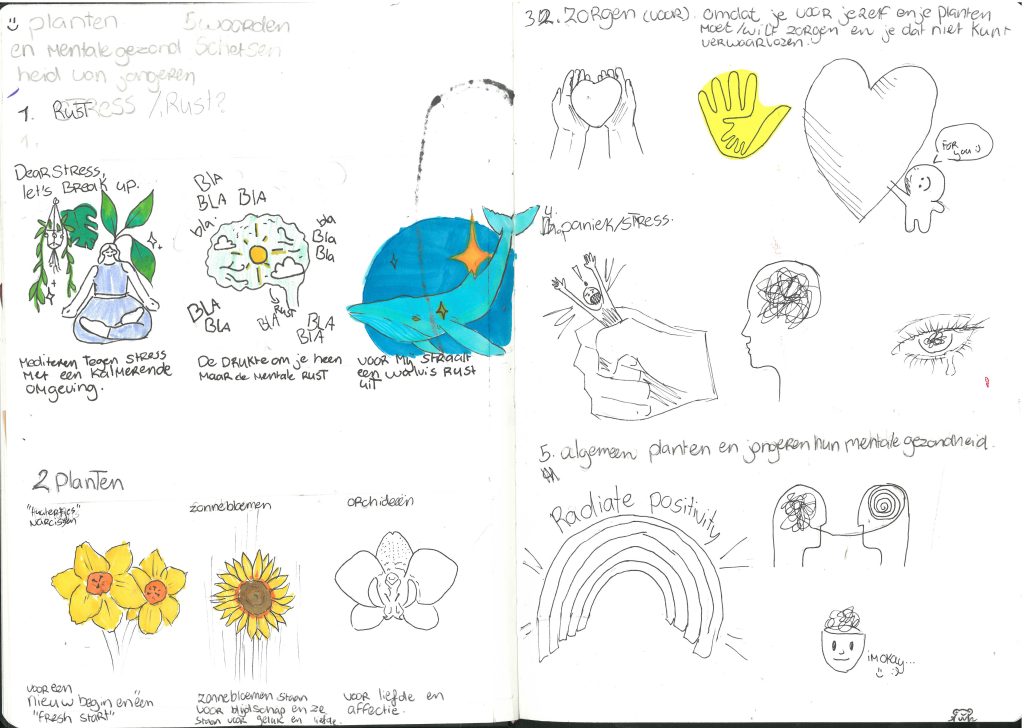 planten 5 woorden
en Mentale gezond Schetsen
heid van jongeren
STRESS /, Rust?
1. Rust
1.
Dear Stress,
let's Break up.
BLA
BLA BLA
bla.
bla
Bla
Bla
BLA
BLA
BLA
RUST
BLA
BLA
Mediteren tegen stress
met een kalmerende
omgeving.
De DRUKte om je heen
maar de mentale RUST
voor mij straalt
een walvis rust
uit
2 planten
Narcissen
zonnebloemen
orchideeën
voor een
nieuw begin en een
"Fresh start"
zonnebloemen staan
voor blijdschap en ze
staan voor geluk en liefde.
voor liefde en
affectie.
3. Zorgen (voor). omdat je voor jezelf en je planten
moet/wilt zorgen en je dat niet kunt
verwaarlozen.
FOR
you :)
4.
paniek/stress.
5. algemeen planten en jongeren hun mentale gezondheid.
Radiate positivity
i'm okay...